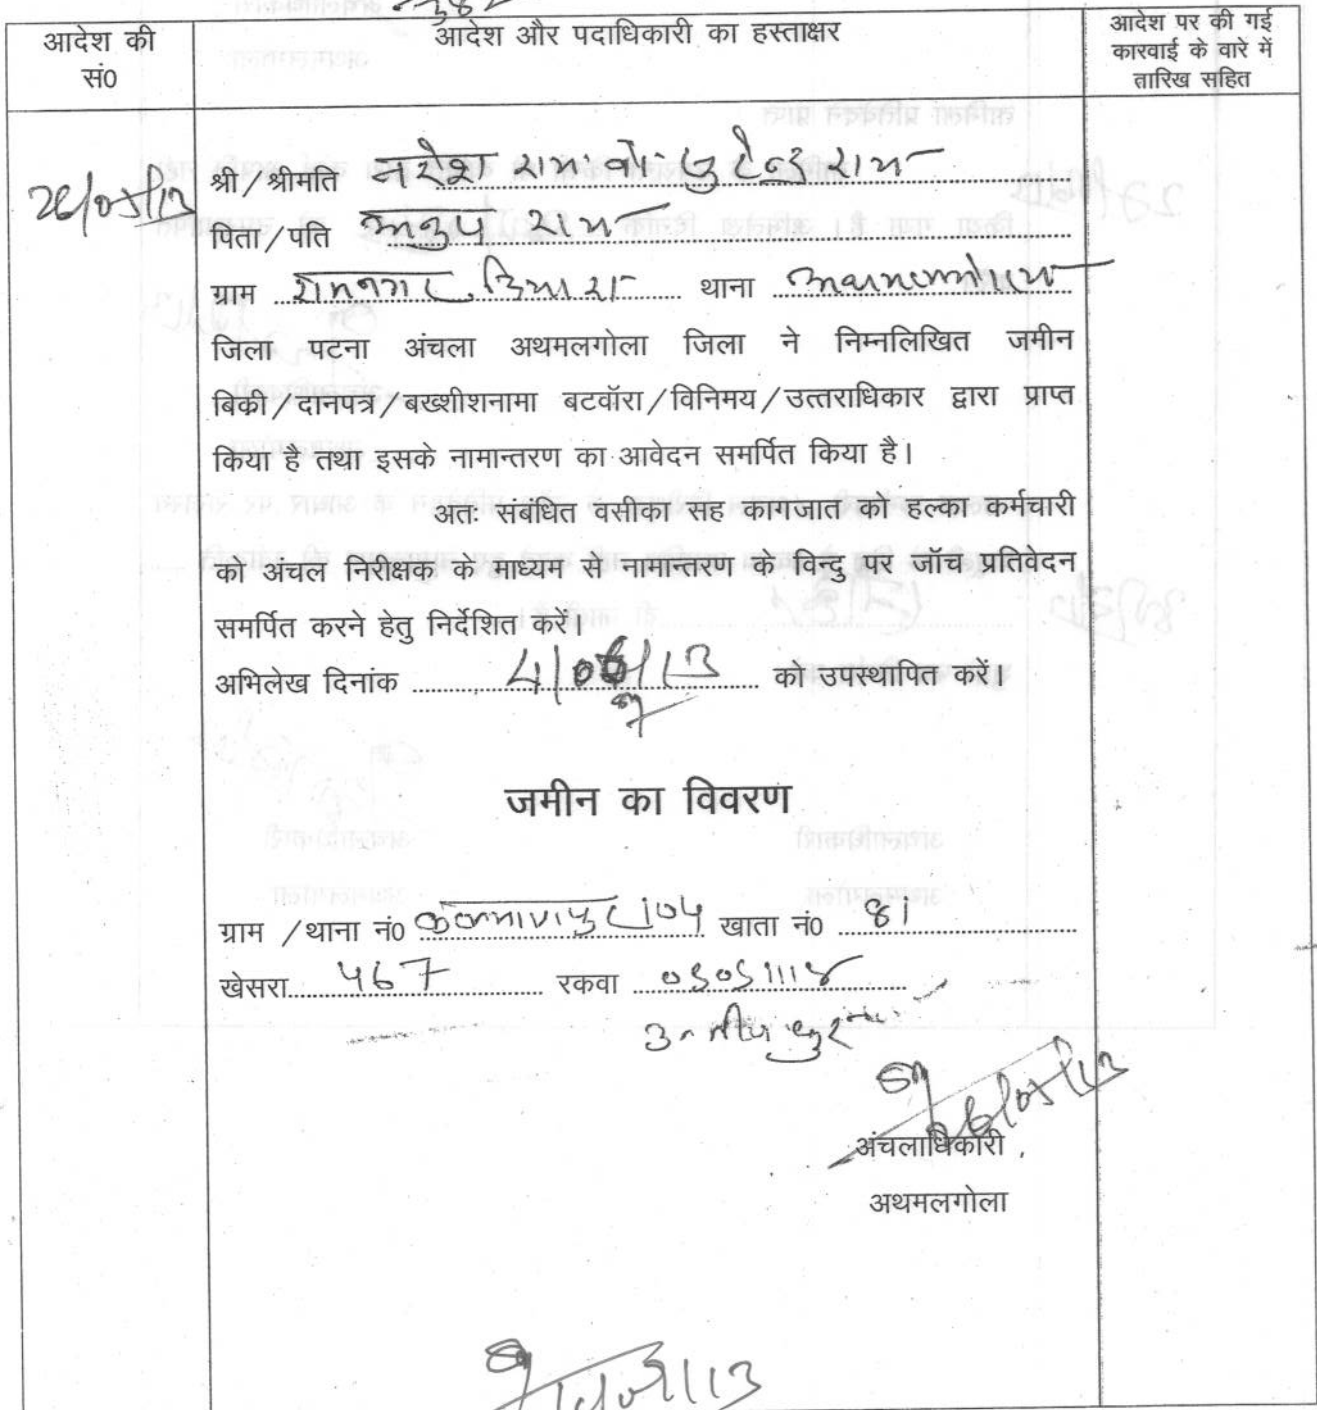 आदेश की
सं0
आदेश और पदाधिकारी का हस्ताक्षर
आदेश पर की गई
कारवाई के वारे में
तारिख सहित
26/05/13
श्री/श्रीमति नरेश राम
पिता/पति राम
ग्राम रामनगर दियारा थाना अथमलगोला
जिला पटना अंचला अथमलगोला जिला ने निम्नलिखित जमीन
बिकी/दानपत्र/बख्शीशनामा बटवॉरा/विनिमय/उत्तराधिकार द्वारा प्राप्त
किया है तथा इसके नामान्तरण का आवेदन समर्पित किया है।
अतः संबंधित वसीका सह कागजात को हल्का कर्मचारी
को अंचल निरीक्षक के माध्यम से नामान्तरण के विन्दु पर जॉच प्रतिवेदन
समर्पित करने हेतु निर्देशित करें।
अभिलेख दिनांक 4/06/13 को उपस्थापित करें।
जमीन का विवरण
ग्राम /थाना नं0 कल्याणपुर 104 खाता नं0 81
खेसरा 467 रकवा
26/05/13
अंचलाधिकारी
अथमलगोला